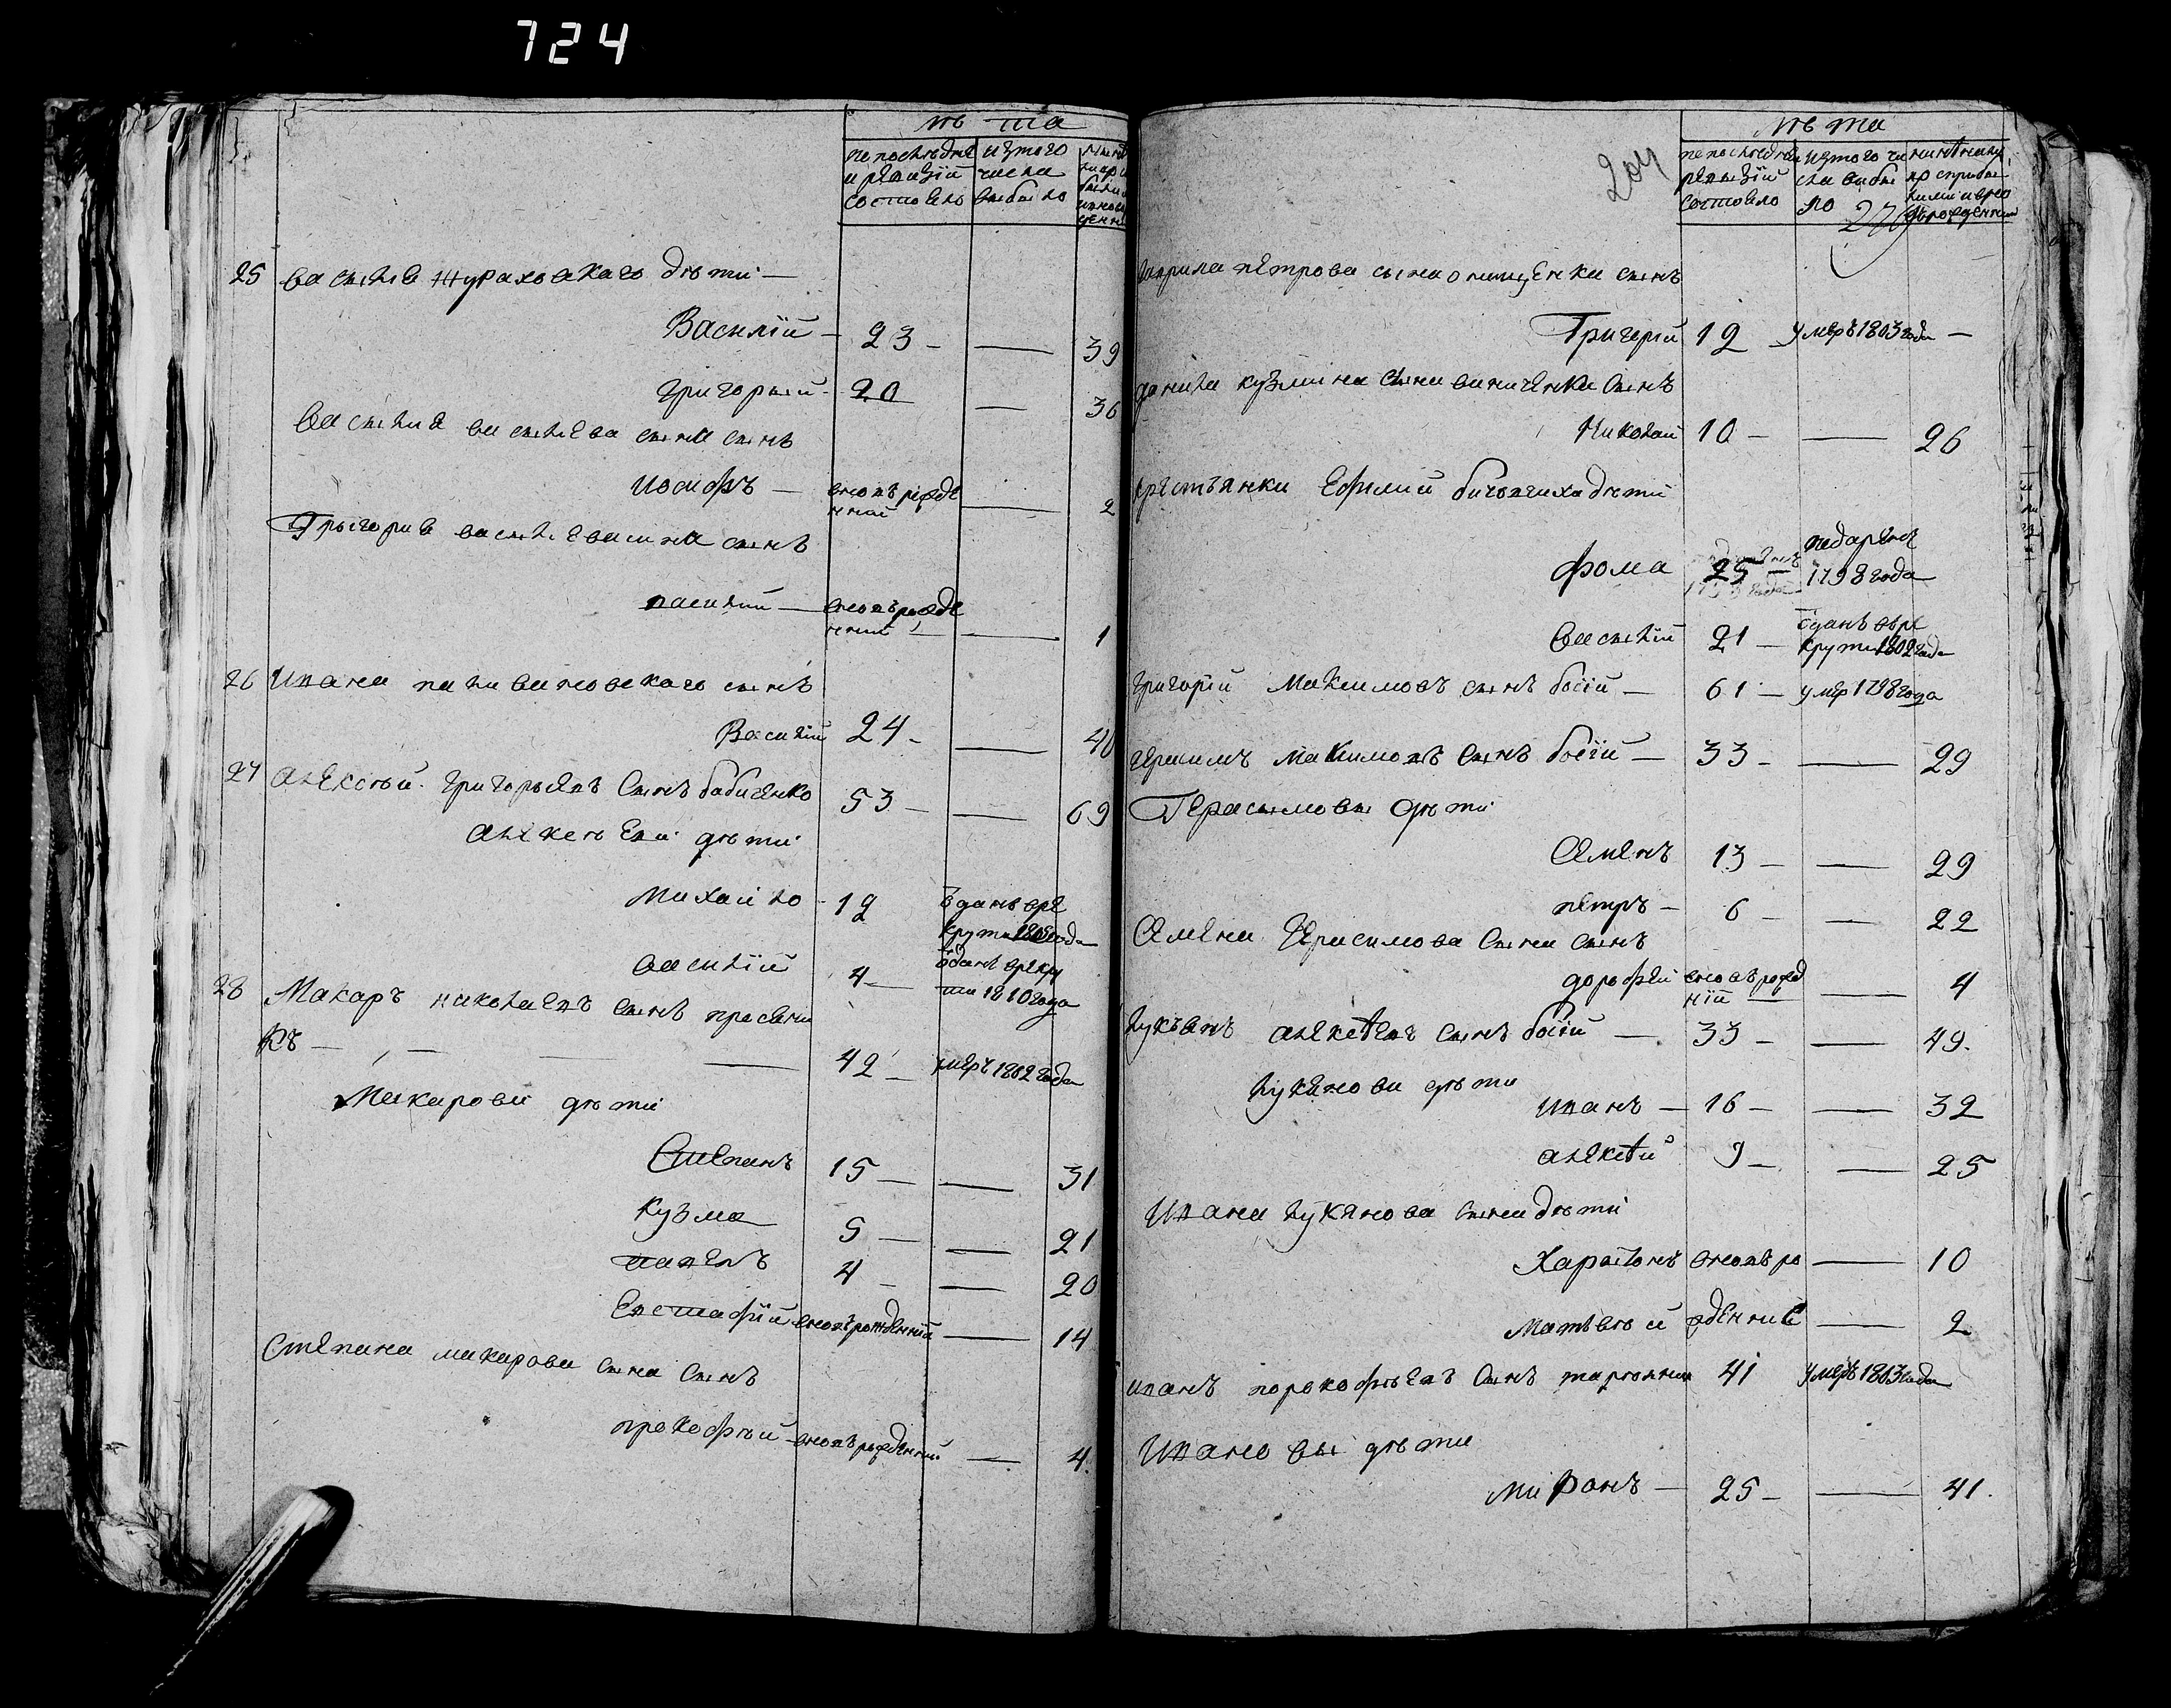 724
лѣта
по последней ревизии состояло
изтого числа выбыло
25 Василія Журавского дѣти
Василій 23 — 39
Григорый 20 — 36
Василия Васильева сына сынъ
Иосифъ — вновъ рожденный — 2
Грыгория Васильева сына сынъ
василий — вновъ рожденный — 1
26 Ивана сынъ
Василій 24 — 40
27 Алексѣй Григорьевъ сынъ бабиченко 53 — 69
Алексѣеви дѣти
Михайло 19
ѿданъ врекруты года
василій 4 — ѿданъ врекруты 1810 года
28 Макаръ николаевъ сынъ
къ — 42 — умеръ 1802 года
Макарови дѣти
Степанъ 15 — 31
Кузма 5 — 21
павелъ 4 — 20
Евстафий вновърожденній — 14
Степана макарова сына сынъ
прокофѣй вновърожденний — 4
204
лѣта
по последней ревизии состояло
изтого числа выбыло
279
Гаврила петрова сына онищенка сынъ
Григорій 12 умеръ 1803 года —
данила кузмина сына виниченка сынъ
Николай 10 — 26
крестьянки Ефимии дѣти
фома 25 — 1798 года
василій 21 — ѿданъ врекруты 1802 года
Григорій Максимовъ сынъ босій — 61 — умер 1798 года
Герасимъ максимовъ сынъ босій — 33 — 29
Герасымовы дѣти
Семенъ 13 — 29
петръ — 6 — 22
Семена Герасимова сына сынъ
дорофей вновърожденій — 4
Лукъянъ алексѣевъ сынъ босій — 33 — 49
Лукянови дѣти
иванъ — 16 — 32
алексѣй 9 — 25
Ивана Лукянова сына дѣти
Харитонъ вновъро — 10
Матвѣй жденние — 2
иванъ порокофѣевъ сынъ 41 умеръ 1803 года
Ивановы дѣти
Миронъ — 25 — 41